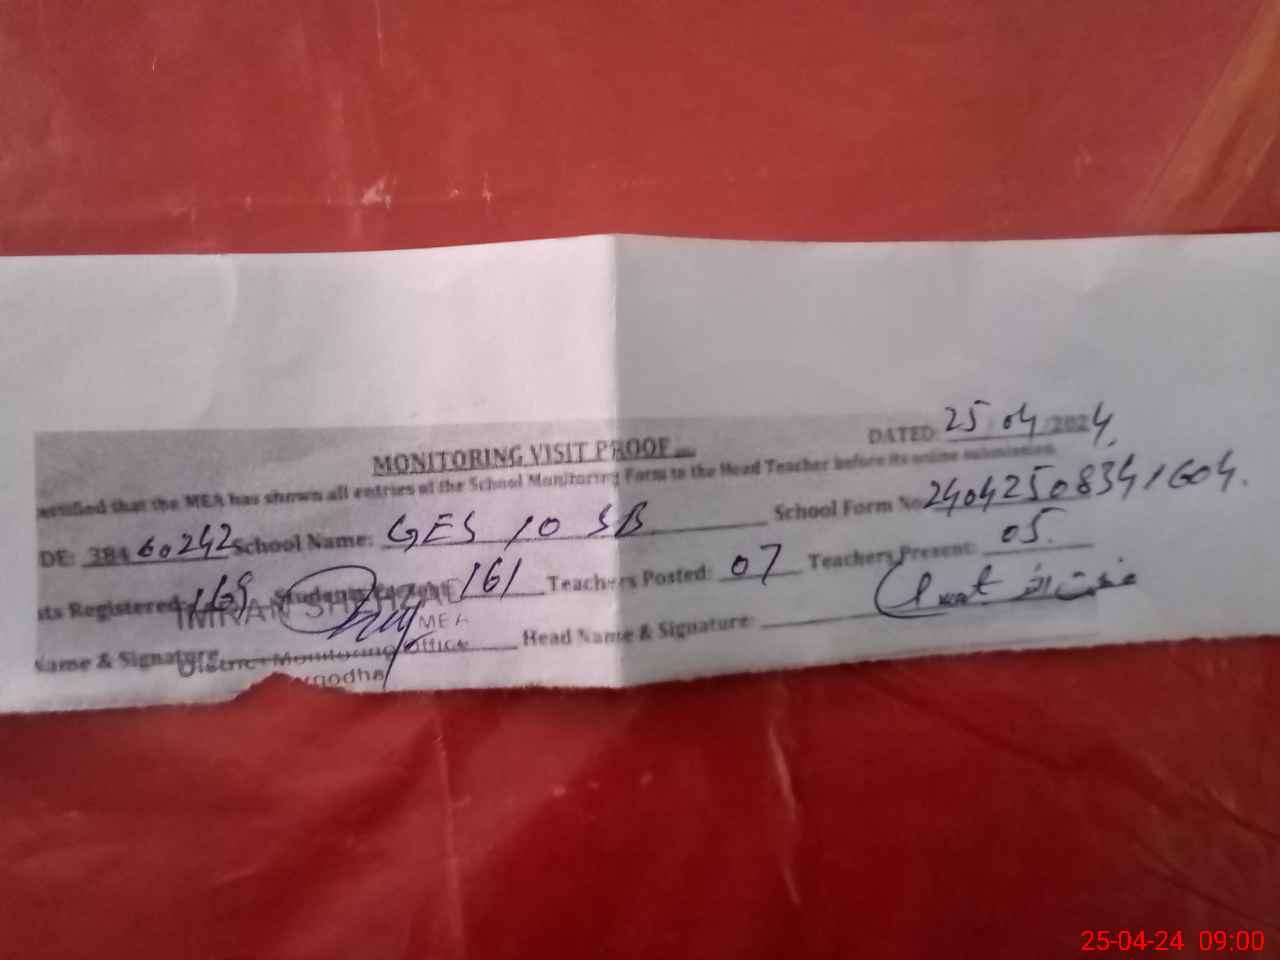 DATED: 25/04/2024
MONITORING VISIT PROOF
ertified that the MEA has shown all entries of the School Monitoring Form to the Head Teacher before its online submission.
DE: 38460242 School Name: GES 10 SB School Form No 24042508341604.
nts Registered: 169 Students 161 Teachers Posted: 07 Teachers Present: 05.
IMRAN SHEHZAD
MEA
Name & Signature Head Name & Signature:
District Monitoring Office
rgodha
25-04-24 09:00